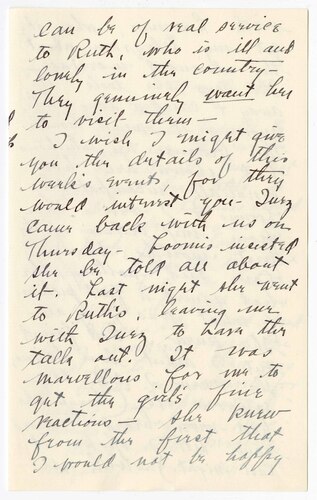 can be of real service
to Ruth, who is ill and
lonely in the country—
They genuinely want her
to visit them—
I wish I might give
you the details of this
week's events, for they
would interest you— Inez
came back with us on
Thursday— Loomis insisted
she be told all about
it. Last night she went
to Ruth's, leaving me
with Inez to have the
talk out. It was
marvellous for me to
get the girl's fine
reactions— she knew
from the first that
I would not be happy